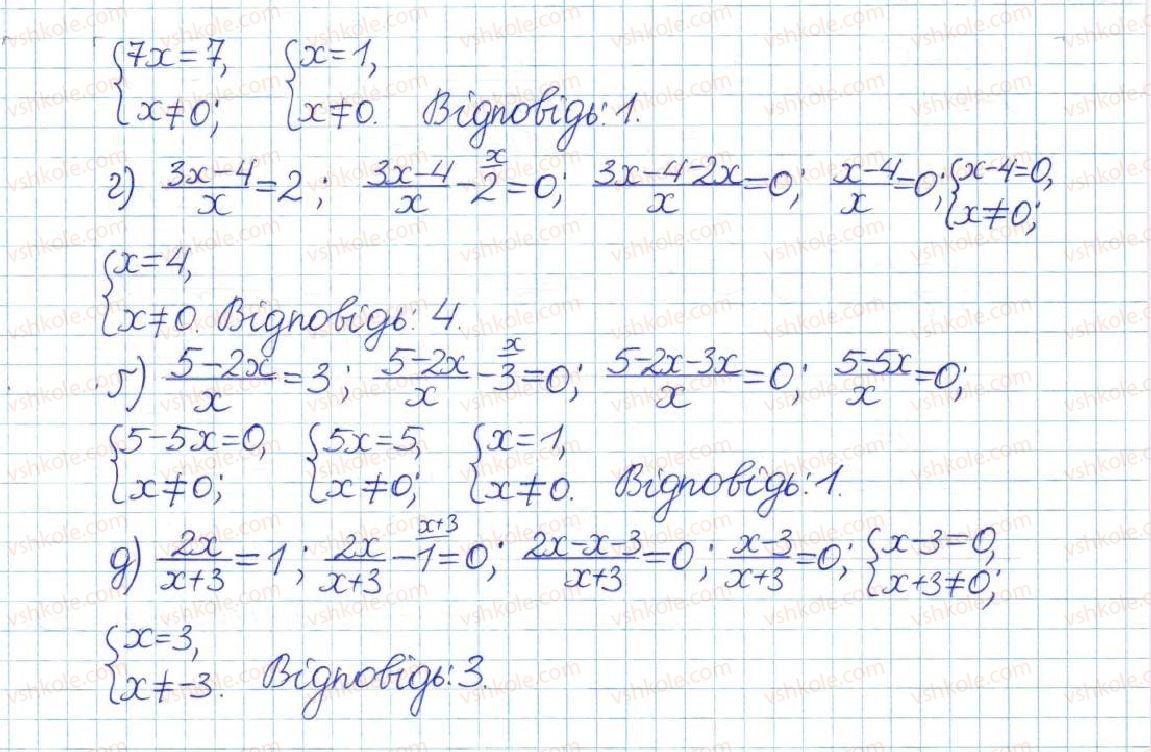 {7x=7, {x=1,
{x≠0; {x≠0. Відповідь: 1.
г) (3x-4)/x=2; (3x-4)/x-2^{x}=0; (3x-4-2x)/x=0; (x-4)/x=0; {x-4=0, x≠0;
{x=4,
{x≠0. Відповідь: 4.
ґ) (5-2x)/x=3; (5-2x)/x-3^{x}=0; (5-2x-3x)/x=0; (5-5x)/x=0;
{5-5x=0, {5x=5, {x=1,
{x≠0; {x≠0; {x≠0. Відповідь: 1.
д) 2x/(x+3)=1; 2x/(x+3)-1^{x+3}=0; (2x-x-3)/(x+3)=0; (x-3)/(x+3)=0; {x-3=0, x+3≠0;
{x=3,
{x≠-3. Відповідь: 3.